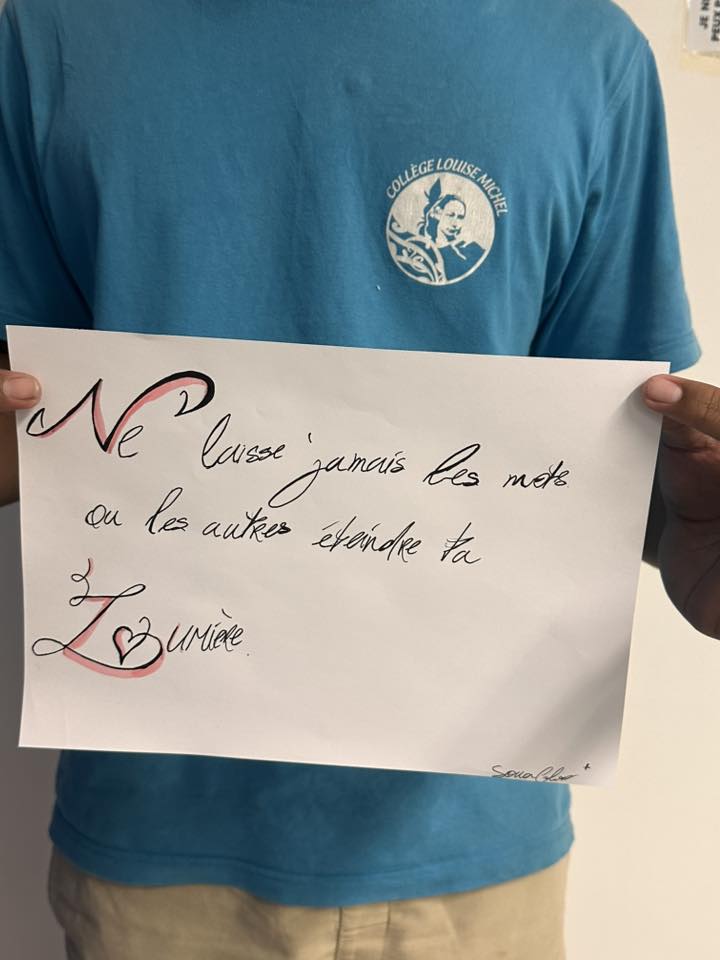 JE NE
PEUX P
COLLÈGE LOUISE MICHEL
Ne laisse jamais les mots
ou les autres éteindre ta
Lumière.